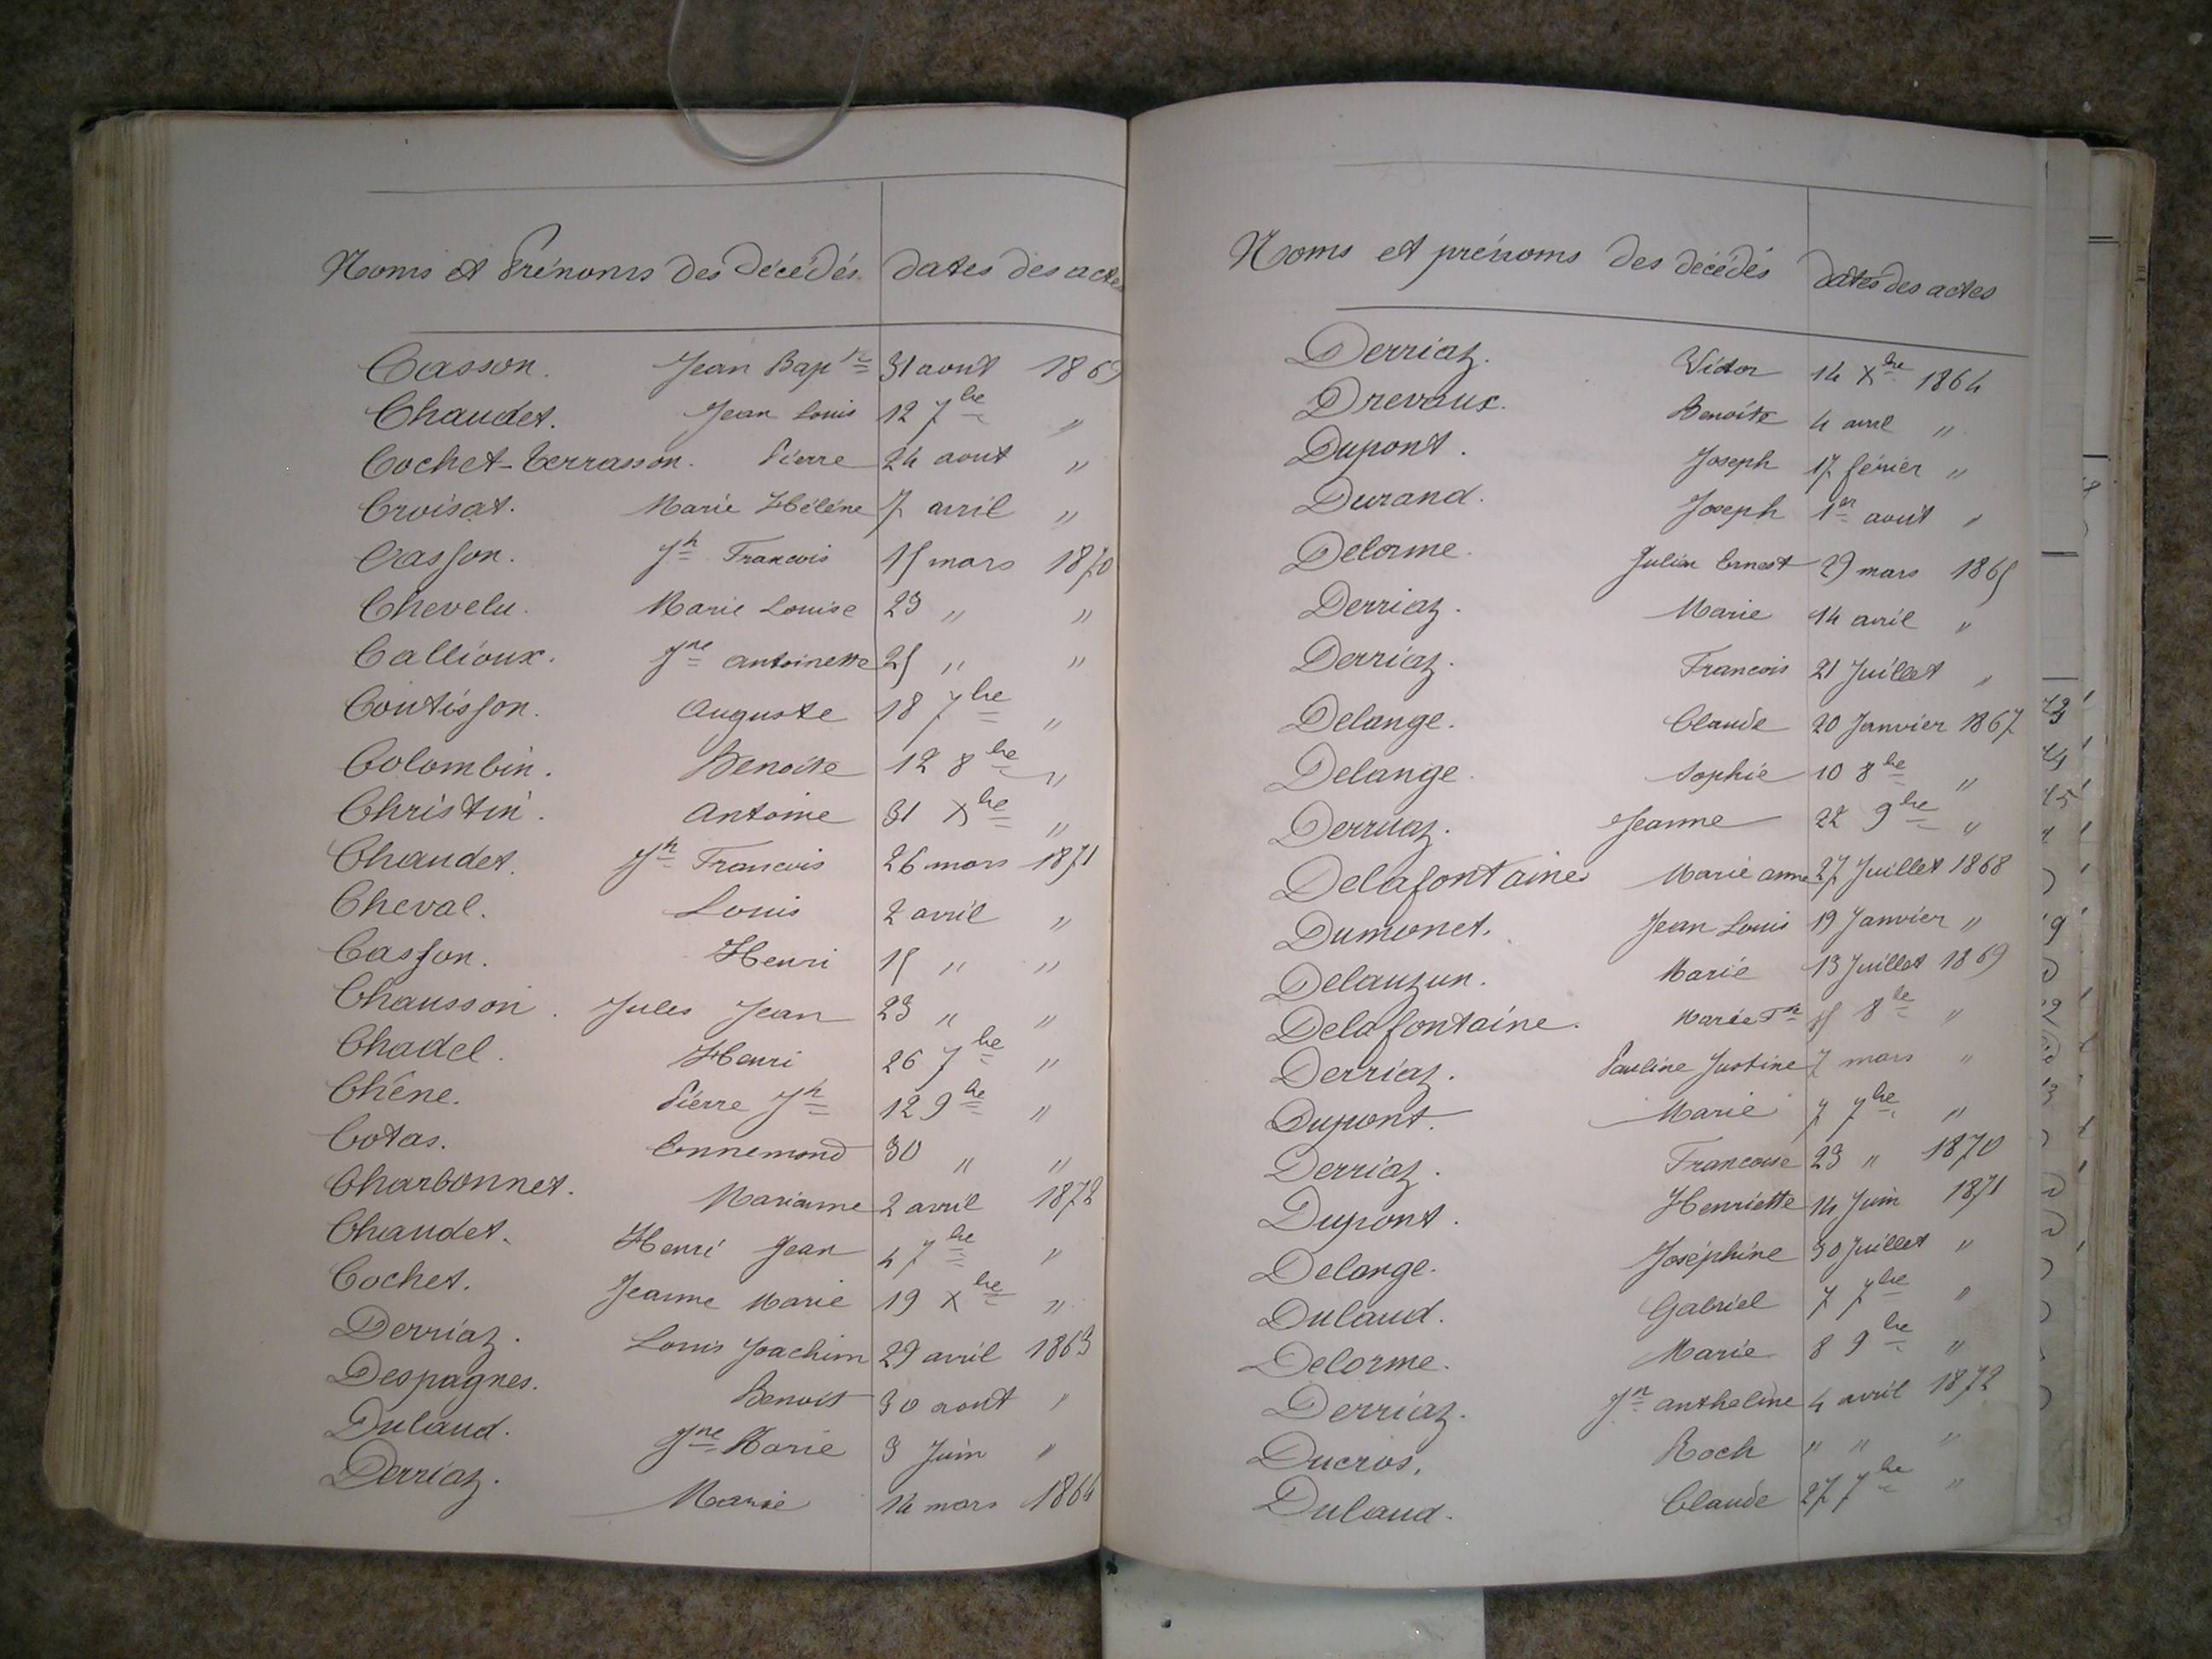 Noms et Prénoms des décédés dates des actes
Casson. Jean Bap^te 31 aout 1869
Chaudet. Jean Louis 12 7^bre "
Cochet-Terrasson. Pierre 24 aout "
Croisat. Marie Hélène 7 avril "
Casson. J^h Francois 15 mars 1870
Chevelu. Marie Louise 23 " "
Callioux. J^ne antoinette 25 " "
Coutisson. Auguste 18 7^bre "
Colombin. Benoite 12 8^bre "
Christin. Antoine 31 X^bre "
Chaudet. J^h Francois 26 mars 1871
Cheval. Louis 2 avril "
Casson. Henri 15 " "
Chausson. Jules Jean 23 " "
Chadel. Henri 26 7^bre "
Chêne. Pierre J^h 12 9^bre "
Cotas. Ennemond 30 " "
Charbonnet. Marianne 2 avril 1872
Chaudet. Henri Jean 4 7^bre "
Cochet. Jeanne Marie 19 X^bre "
Derriaz. Louis Joachim 29 avril 1863
Despagnes. Benoit 30 aout "
Dulaud. J^ne Marie 3 Juin "
Derriaz. Marie 14 mars 1864
Noms et prénoms des décédés dates des actes
Derriaz. Victor 14 X^bre 1864
Drevoux. Benoite 4 avril "
Dupont. Joseph 17 février "
Durand. Joseph 1^er aout "
Delorme. Julien Ernest 29 mars 1865
Derriaz. Marie 14 avril "
Derriaz. Francois 21 Juillet "
Delange. Claude 20 Janvier 1867
Delange. Sophie 10 8^bre "
Derriaz. Jeanne 22 9^bre "
Delafontaine Marie anne 27 Juillet 1868
Dumonet. Jean Louis 19 Janvier "
Delauzun. Marie 13 Juillet 1869
Delafontaine. Marie 15 8^bre "
Derriaz. Pauline Justine 7 mars "
Dupont. Marie 7 7^bre "
Derriaz. Francoise 23 " 1870
Dupont. Henriette 14 Juin 1871
Delange. Joséphine 30 Juillet "
Dulaud. Gabriel 7 7^bre "
Delorme. Marie 8 9^bre "
Derriaz. J^n anthelme 4 avril 1872
Ducros. Roch " " "
Dulaud. Claude 27 7^bre "